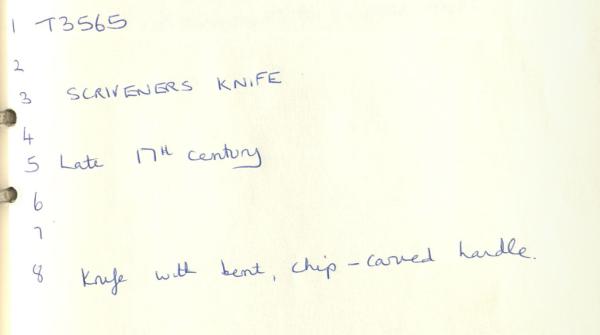 1 T3565
2
3 SCRIVENERS KNIFE
4
5 Late 17TH century
6
7
8 Knife with bent, chip-carved handle.